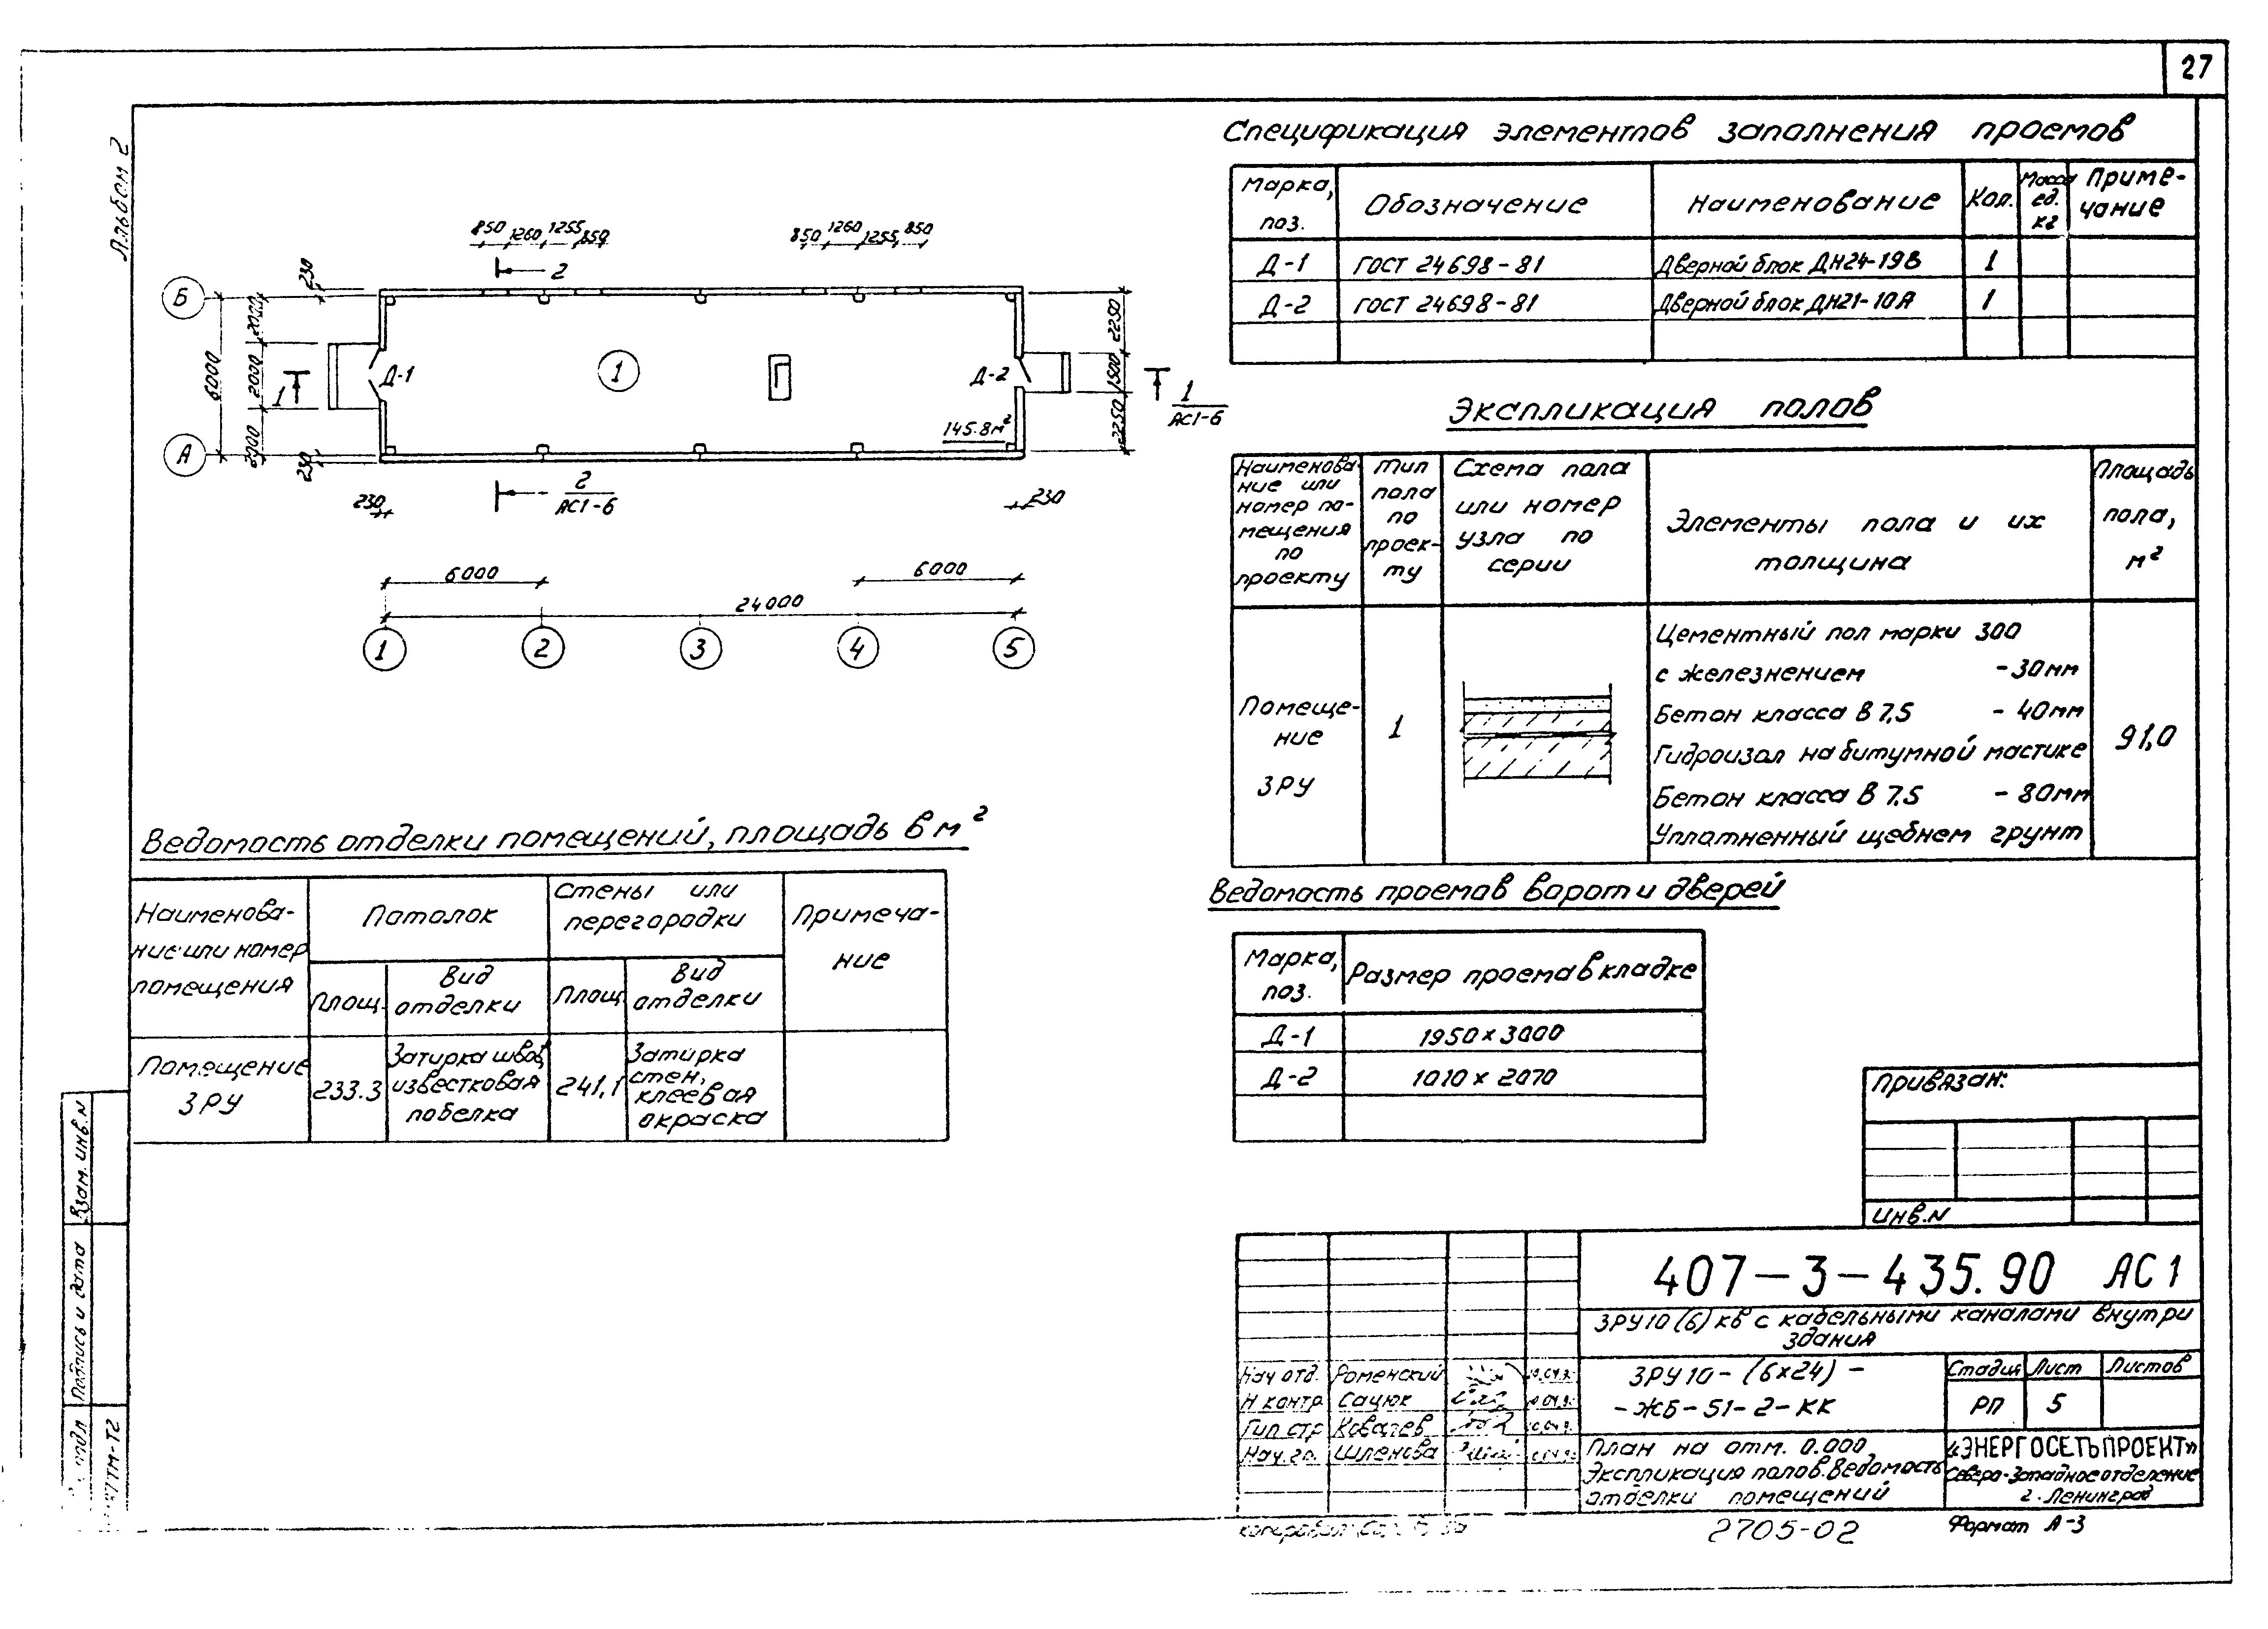 27
Альбом 2
850 1260 1255 850
850 1260 1255 850
2
230
Б
2000
2250
6000
2000
1
Д-1
1
Д-2
1500
1
АС1-6
2000
2250
145.8м²
А
230
2
АС1-6
230
230
6000
6000
24000
1 2 3 4 5
Спецификация элементов заполнения проемов
Марка, поз. Обозначение Наименование Кол. Масса ед. кг Приме-чание
Д-1 ГОСТ 24698-81 Дверной блок ДН24-19В 1
Д-2 ГОСТ 24698-81 Дверной блок ДН21-10А 1
Экспликация полов
Наименова-ние или номер по-мещения по проекту
Тип пола по проек-ту
Схема пола или номер узла по серии
Элементы пола и их толщина
Площадь пола, м²
Помеще-ние ЗРУ
1
Цементный пол марки 300
с железнением -30мм
Бетон класса В 7,5 - 40мм
Гидроизол на битумной мастике
Бетон класса В 7.5 - 80мм
Уплотненный щебнем грунт
91,0
Ведомость отделки помещений, площадь в м²
Наименова-ние или номер помещения
Потолок
Стены или перегородки
Примеча-ние
Площ. Вид отделки Площ. Вид отделки
Помещение ЗРУ
233.3
Затирка швов, известковая побелка
241,1
Затирка стен, клеевая окраска
Ведомость проемов ворот и дверей
Марка, поз. Размер проема в кладке
Д-1 1950 х 3000
Д-2 1010 х 2070
Привязан:
Инв.N
407-3-435.90 АС1
ЗРУ10(6) кв с кабельными каналами внутри
здания
Нач отд. Роменский
Н контр Сацюк
Гип стр Ковалев
Нач.гр. Шленова
ЗРУ10-(6х24)-
-ЖБ-51-2-КК
Стадия Лист Листов
РП 5
План на отм. 0.000
Экспликация полов. Ведомость
отделки помещений
«ЭНЕРГОСЕТЬПРОЕКТ»
Северо-Западное отделение
г. Ленинград
2705-02
Формат А-3
Взам. инв. N
Подпись и дата
ТМ-Т2